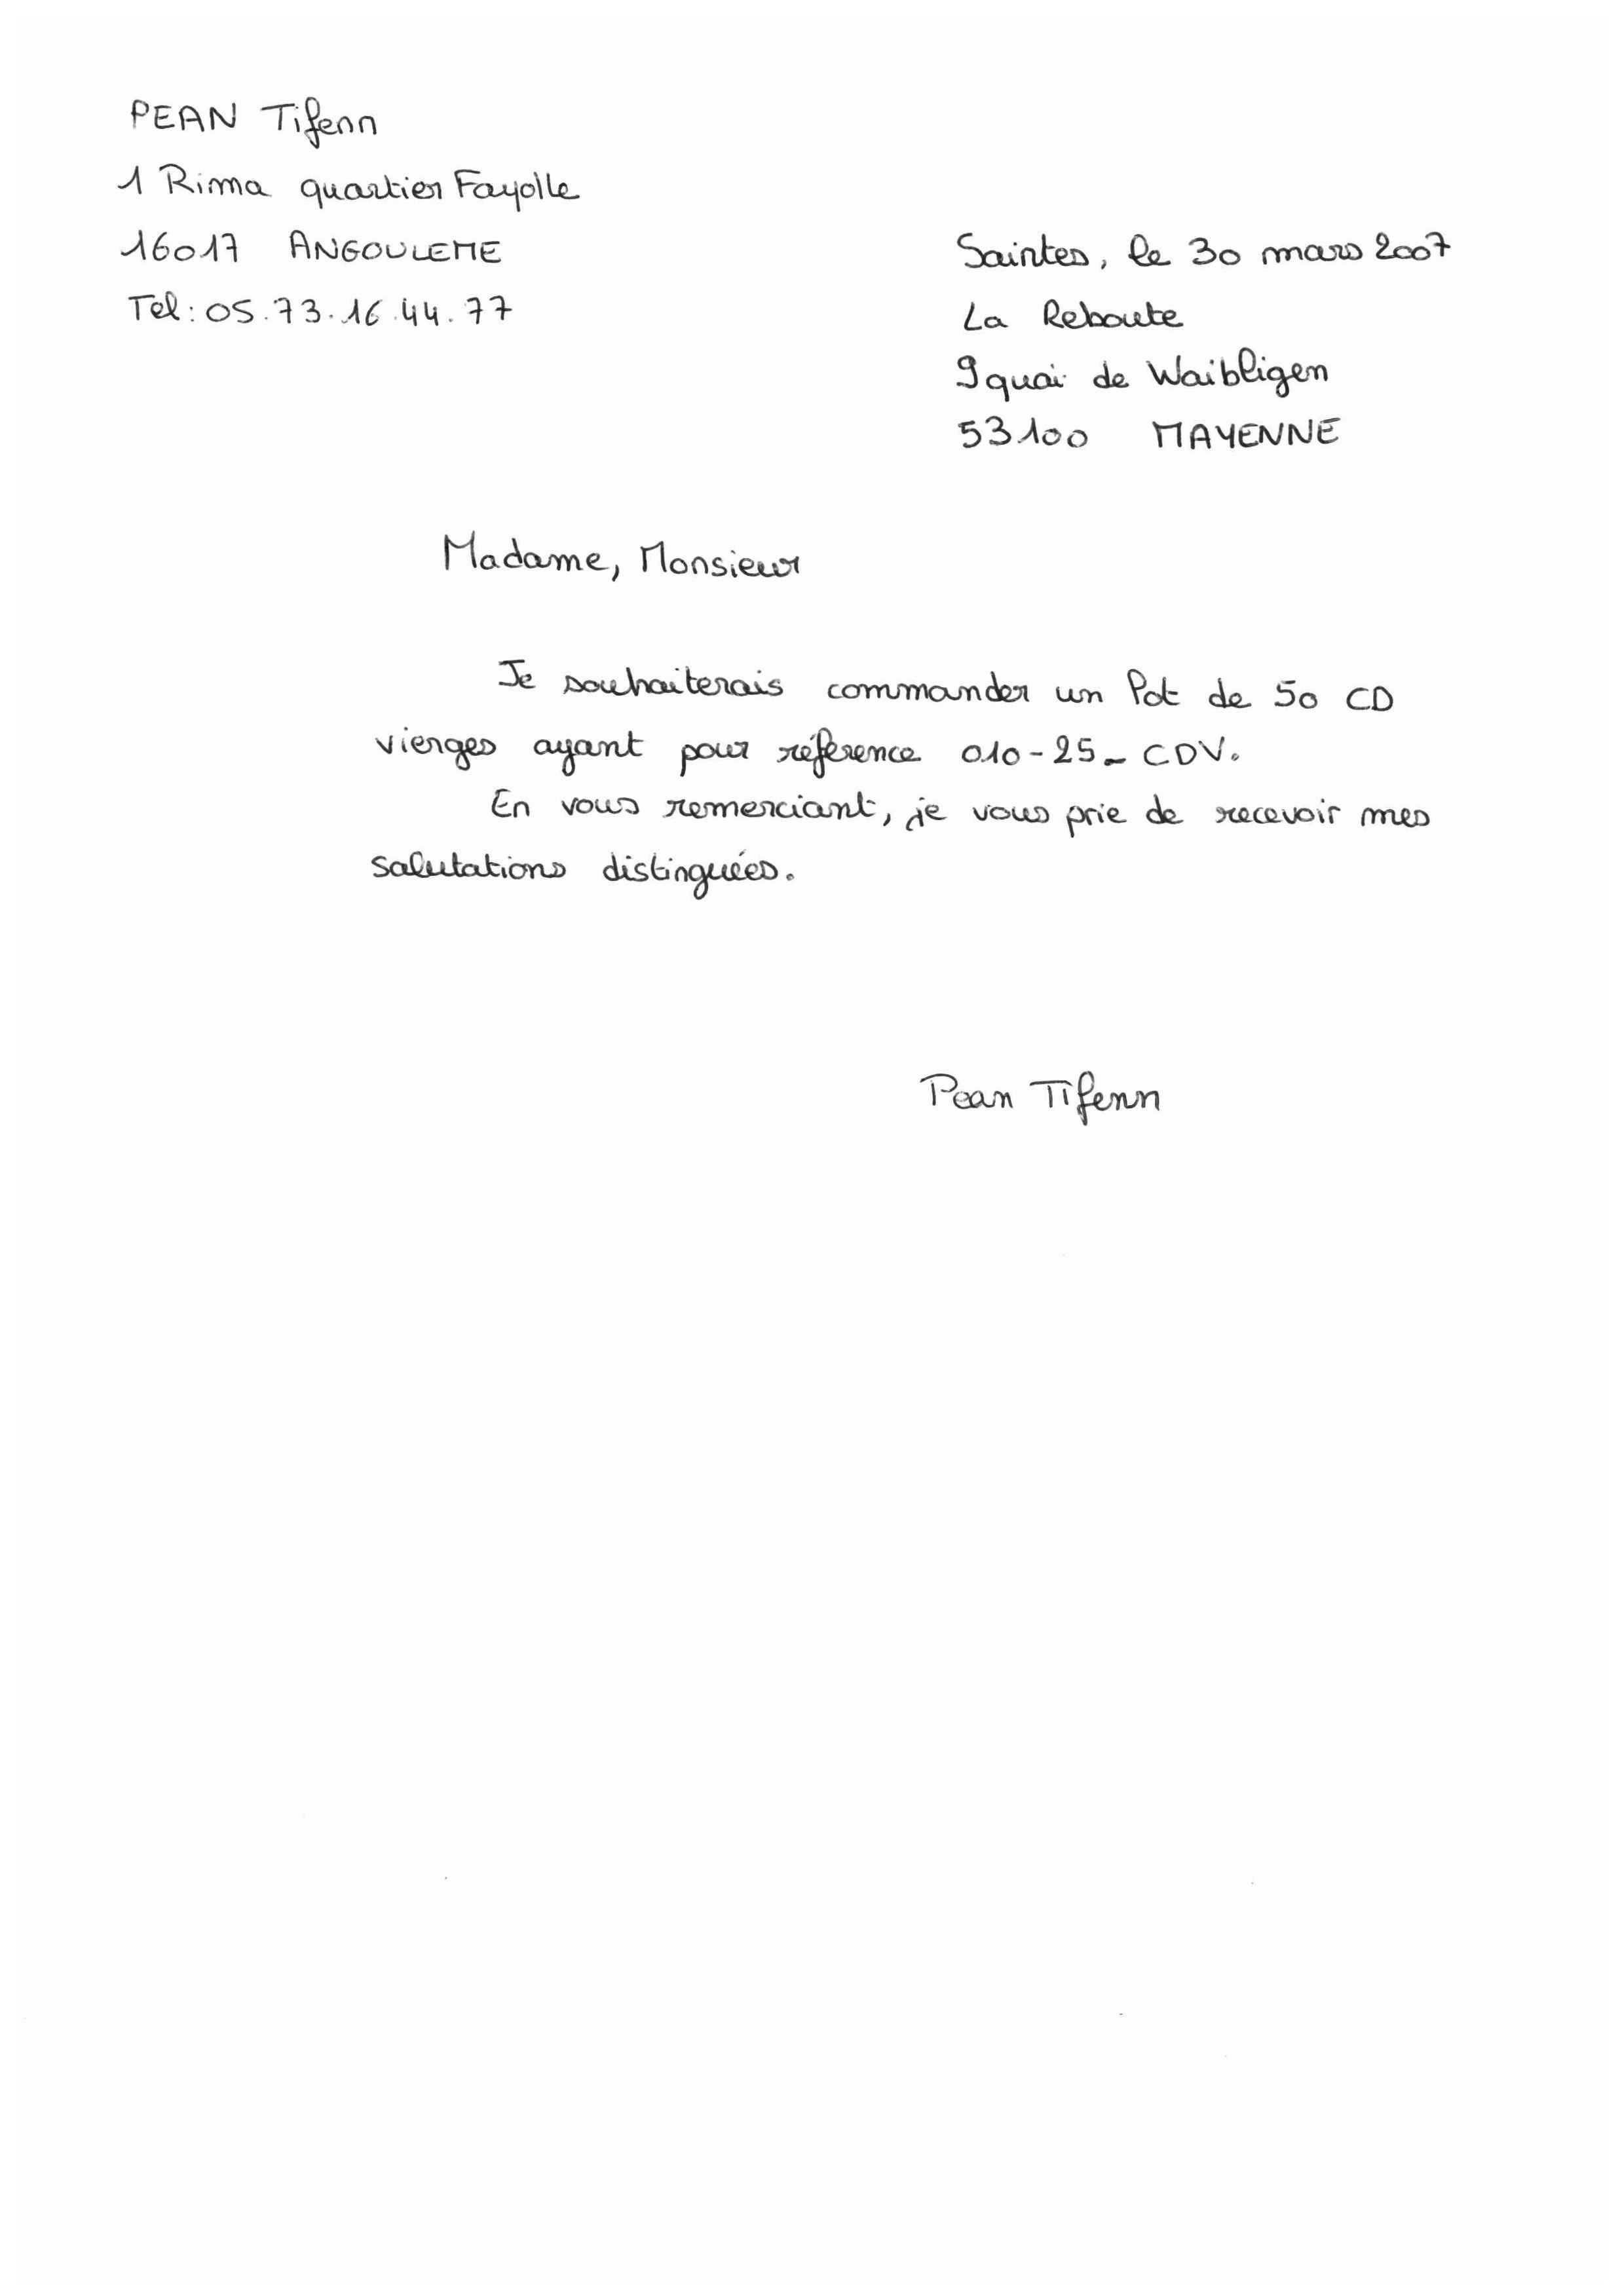 PEAN Tifenn
1 Rima quartier Fayolle
16017 ANGOULEME
Tel : 05.73.16.44.77
Saintes, le 30 mars 2007
La Reboute
9 quai de Waibligen
53100 MAYENNE
Madame, Monsieur
Je souhaiterais commander un Pot de 50 CD
vierges ayant pour réference 010-25-CDV.
En vous remerciant, je vous prie de recevoir mes
salutations distinguées.
Pean Tifenn